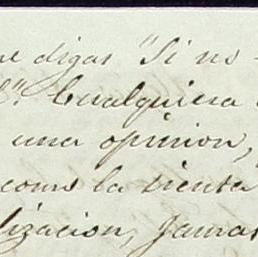 digas "Si no
Cualquiera
una opinion,
como la sienta
lizacion, Jamas